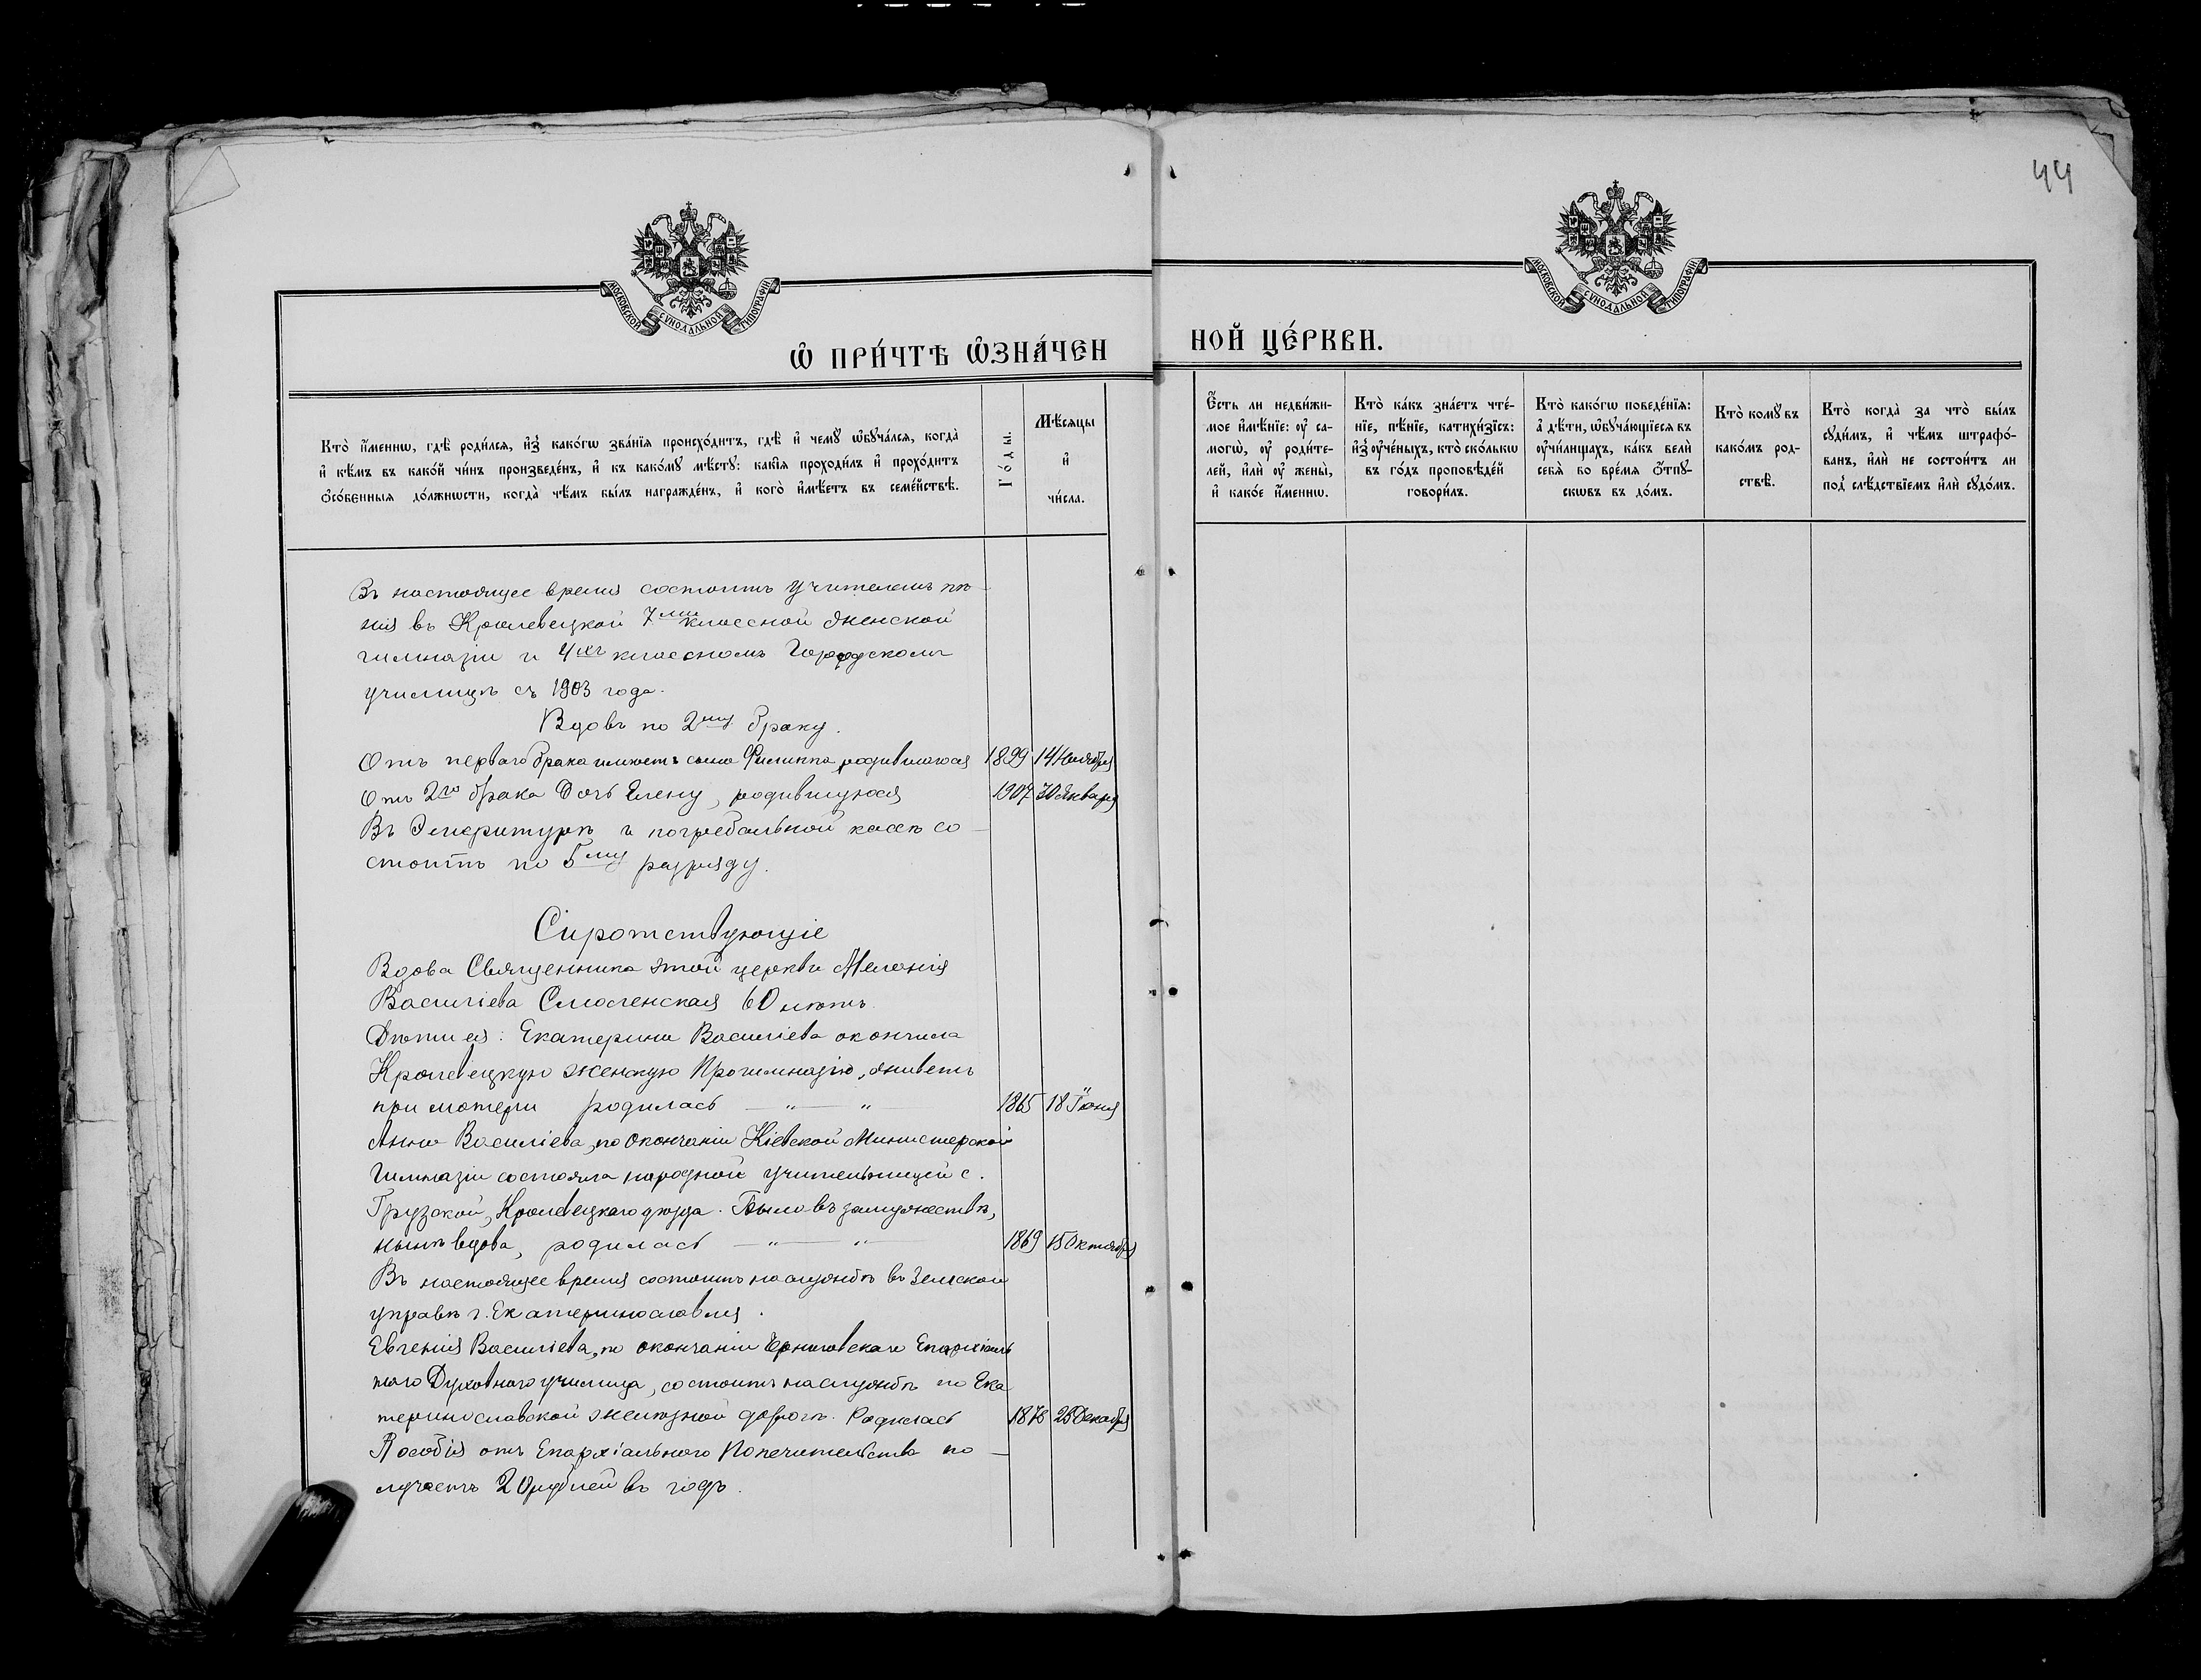 44
МОСКОВСКОЙ СУНОДАЛЬНОЙ ТИПОГРАФІИ
МОСКОВСКОЙ СУНОДАЛЬНОЙ ТИПОГРАФІИ
Ѽ ПРИ́ЧТѢ Ѽ҆ЗНА́ЧЕН
НОЙ ЦЕ́РКВИ.
Кто̀ и҆́менѡ, гдѣ̀ роди́лсѧ, и҆з̾ како́гѡ зва́нїѧ происхо́дитъ, гдѣ̀ и҆ чемꙋ̀ ѡ҆бꙋча́лсѧ, когда̀
и҆ кѣ́мъ въ како́й чи́нъ произведе́нъ, и҆ къ како́мꙋ мѣ́стꙋ: какі̑ѧ проходи́лъ и҆ прохо́дитъ
ѻ҆со́бенныѧ до́лжнѡсти, когда̀ чѣ́мъ бы́лъ награжде́нъ, и҆ кого̀ и҆мѣ́етъ въ семе́йствѣ.
Го́ды.
Мѣ́сѧцы
и҆
чи́сла.
Е҆́сть ли недви́жи-
мое и҆мѣ́нїе: ᲂу҆ са-
могѡ̀, ᲂу҆ роди́те-
лей, и҆лѝ ᲂу҆ жены̀,
и҆ како́е и҆́менѡ.
Кто̀ ка́къ зна́етъ чте́-
нїе, пѣ́нїе, катихи́зїсъ:
и҆з̾ ᲂу҆че́ныхъ, кто̀ ско́лькѡ
въ го́дъ проповѣ́дей
говори́лъ.
Кто̀ како́гѡ поведе́нїѧ:
а҆ дѣ́ти, ѡ҆бꙋча́ющїесѧ въ
ᲂу҆чи́лищахъ, ка́къ велѝ
себѧ̀ во вре́мѧ ѻ҆́тпꙋ-
скѡвъ въ до́мъ.
Кто̀ комꙋ̀ въ
како́мъ род-
ствѣ̀.
Кто̀ когда̀ за что̀ бы́лъ
сꙋди́мъ, и҆ чѣ́мъ штрафо́-
ванъ, и҆лѝ не состои́тъ ли
под̾ слѣ́дствїемъ и҆лѝ сꙋдо́мъ.
Въ настоящее время состоитъ учителемъ пѣ-
нія въ Кролевецкой 7ми классной женской
гимназіи и 4хъ классномъ Городскомъ
училищѣ съ 1903 года.
Вдовъ по 2му браку.
Отъ перваго брака имѣетъ сына Филиппа, родившагося 1899 14 Ноября
Отъ 2го брака дочь Елену, родившуюся 1907 30 Января
Въ Эмеритурѣ и погребальной кассѣ со-
стоитъ по 5му разряду.
Сиротствующіе
Вдова Священника этой церкви Меланія
Василіева Смоленская 60 лѣтъ.
Дѣти ея: Екатерина Василіева окончила
Кролевецкую женскую Прогимназію, живетъ
при матери родилась — " — " — 1865 18 Іюня
Анна Василіева, по окончаніи Кіевской Министерской
Гимназіи состояла народной учительницей с.
Грузской, Кролевецкаго уѣзда. Была въ замужествѣ,
нынѣ вдова, родилась — " — " — 1869 15 Октября
Въ настоящее время состоитъ на службѣ въ Земской
управѣ г. Екатеринославля.
Евгенія Василіева, по окончаніи Черниговскаго Епархіаль
наго Духовнаго училища, состоитъ на службѣ по Ека
теринославской желѣзной дорогѣ. Родилась 1878 25 Декабря
Пособія отъ Епархіальнаго Попечительства по-
лучаетъ 20 рублей въ годъ.